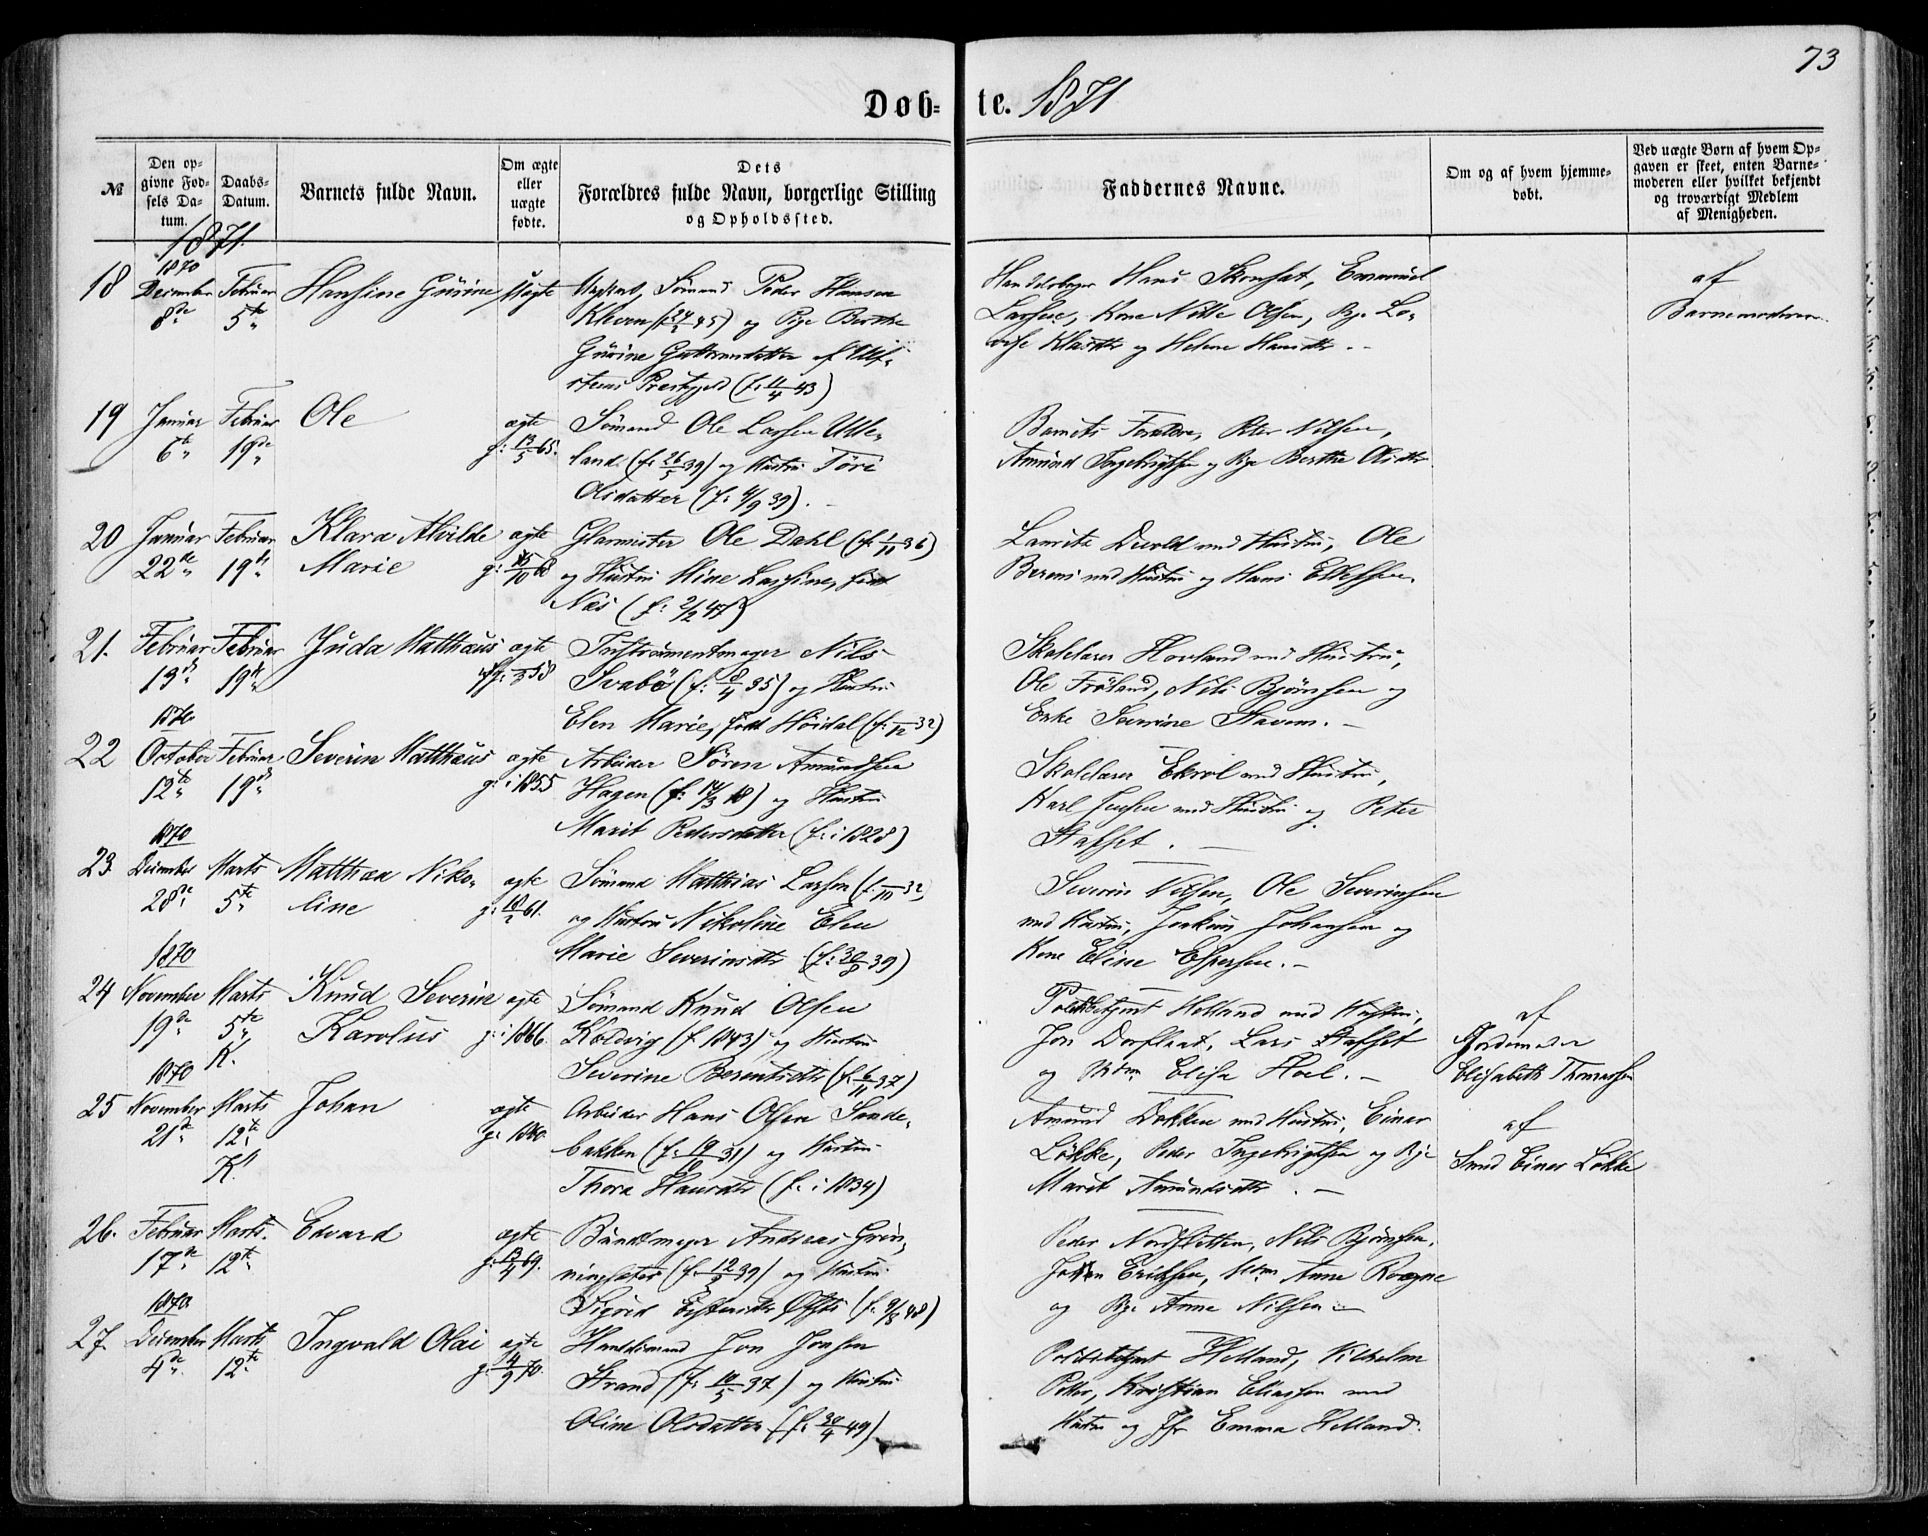 73
Døb- te. 1871
№
Den op-
givne Fød-
sels Da-
tum.
Daabs-
Datum.
Barnets fulde Navn.
Om ægte
eller
uægte
fødte.
Dets
Forældres fulde Navn, borgerlige Stilling
og Opholdssted.
Faddernes Navne.
Om og af hvem hjemme-
døbt.
Ved uægte Børn af hvem Op-
gaven er skeet, enten Barne-
moderen eller hvilket bekjendt
og troværdigt Medlem
af Menigheden.
1871.
1870
18 December Februar Hansine Gurine uægte Ungkarl, Sømand Peder Hansen
8de 5te Kleven (f: 45) og Pige Berthe
Gurine Guttormsdatter af Ulf-
stens Præstegjeld (f: 11/4 43)
Hans, Emanuel
Larsen, Kone Olsen, Pige Lo-
vise og Helene Hansdtr. –
af
Barnemoderen.
19 Januar Februar Ole ægte Sømand Ole Larsen Ulle-
6te 19de g: 13/5 65. land (f: 26/5 39) og Hustru Tøri
Olsdatter (f: 4/9 39). –
Barnets Forældre, Peter Nilsen,
Amund Ingebrigtsen og Pige Berthe Olsdtr
20 Januar Februar Klara Alvilde ægte Glarmester Ole Dahl (f: 1/11 36)
22de 19de Marie g: 10 68 og Hustru Mine Larsine, født
Næs (f: 2/2 47)
Lauritz Devold med Hustru, Ole
Berens med Hustru og Hans Ellefsen.
21. Februar Februar Juda Matthæus ægte Instrumentmager Nils
13de 19de g: 58 Svabø (f: 8/4 35) og Hustru
Elen Marie, født Høidal (f: 12 32)
Skolelærer Hovland med Hustru,
Ole Frøland, Nils Bjørnsen og
Enke Severine Staven. –
1870
22 October Februar Severin Matthæus ægte Arbeider Søren Amundsen
12te 19de g: i 1855 Hagen (f: 14/3 18) og Hustru
Marit Pedersdatter (f: i 1828)
Skolelærer Ekrol med Hustru,
Karl Jensen med Hustru og Peter
Stafset. –
1870
23. December Marts Matthea Niko- ægte Sømand Matthias Larsen (f. 10 32)
28de 5te line g: 10/2 61. og Hustru Nikoline Elen
Marie Severinsdtr (f: 30/8 39)
Severin Nilsen, Ole Severinsen
med Hustru, Joakim Johansen og
Kone Eline Espersen. –
1870
24 November Marts Knud Severin ægte Sømand Knud Olsen
19de 5te Karolus g: i 1866. Koldvig (f. 1843) og Hustru
K. Severine Berentsdtr (f: 6/11 37)
Politibetjent Helland med Hustru,
Jon, Lars Stafset
og Mdm Elisa Hoel. –
af
Jordemoder
Elisabeth Thomassen
1870
25 November Marts Johan ægte Arbeider Hans Olsen Sande-
21de 12te g: 1860. bakken (f: 19/10 31) og Hustru
K. Thora Hansdtr (f: i 1834)
Amund Dokken med Hustru, Einar
Løkke, Peder Ingebrigtsen og Pige
Marit Amundsdtr. –
af
Smed Einar Løkke
26. Februar Marts. Edvard ægte Bundtmager Andreas Grøn-
17de 12te g: 13/4 69. ningsæter (f: 12/5 39) og Hustru
Sigrid (f: 9/8 48)
Peder Nordsletten, Nils Bjørnsen,
Eriksen, Mdm Anne Rogne
og Pige Anne Nilsen –
1870
27. December Marts Ingvald Olai ægte Handelsmand Jon Jonsen
4de 12te g: 14/9 70. Strand (f: 10/5 37) og Hustru
Oline Olsdatter (f: 30/4 49)
Politibetjent Helland, Vilhelm
Peter, Kristian Eliassen med
Hustru og Jfr Emma Helland.